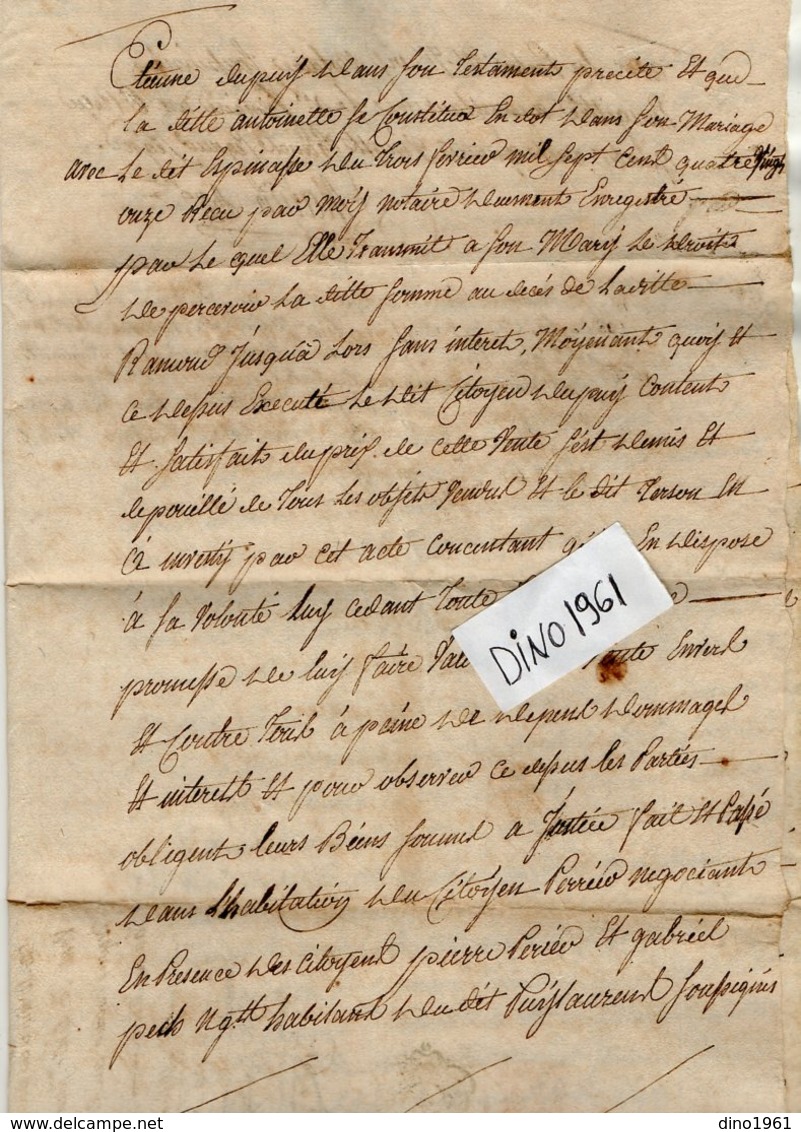 Etienne dupuy dans son testament precité Et que
la ditte antoinette se Constitua En dot dans son Mariage
avec le dit Espinasse du trois fevrier mil sept Cent quatre vingt
onze Recu par moy notaire duement Enregistré
par le quel Elle transmit a son Mary le droit
de percevoir la ditte somme au decés de laditte
jusqu'à lors sans interet, Moÿenant quoy Et
ce depus Executé le dit Citoyen dupuy Content
Et satisfait du prix de cette vente s'est demis Et
depouillé de tous les objets vendus Et le dit Terson En
a investy par cet acte concentant En dispose
à sa volonté luy cedant toute
promesse de luy faire Envers
Et Contre tous à peine de depens dommages
Et interest Et pour observer ce depus les Parties
obligent leurs Biens soumis a Justice fait Et Passé
dans l'habitation du Citoyen Perrier negociant
En Presence des citoyens pierre Perier Et gabriel
pech Ngtt habitant du dit Puylaurens soussignés
DiNO 1961
dino1961